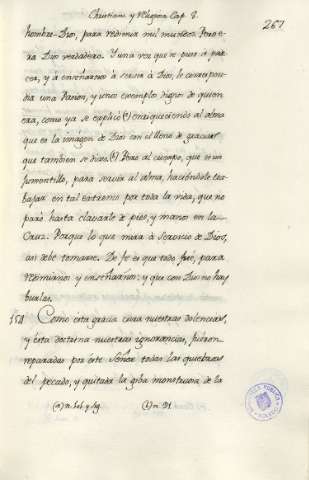 Christiana y Religiosa Cap. 8.
267
hombre-Dios, para redimir mil mundos. Pero
era Dios verdadero. Y una vez que se puso a pade-
cer, y à enseñarnos à servir à Dios, le correspon-
dia una Pasion, y unos exemplos dignos de quien
era, como ya se explicò (a) enriqueciendo al alma
que es la imágen de Dios con el lleno de gracias
que tambien se dixo. (b) Pero al cuerpo, que es un
jumentillo, para servir al alma, haciendole tra-
bajar en tal extremo por toda la vida, que no
paró hasta clavarle de pies, y manos en la
Cruz. Porque lo que mira à servicio de Dios,
asi debe tomarse. De fe es que todo fué, para
redimirnos y enseñarnos: y que con Dios no hay
burlas.
151 Como esta gracia cura nuestras dolencias,
y ésta doctrina nuestras ignorancias, fueron
reparadas por éste Señor todas las quiebras
del pecado, y quitada la giba monstruosa de la
(a) n. y sig. (b) n. 91.